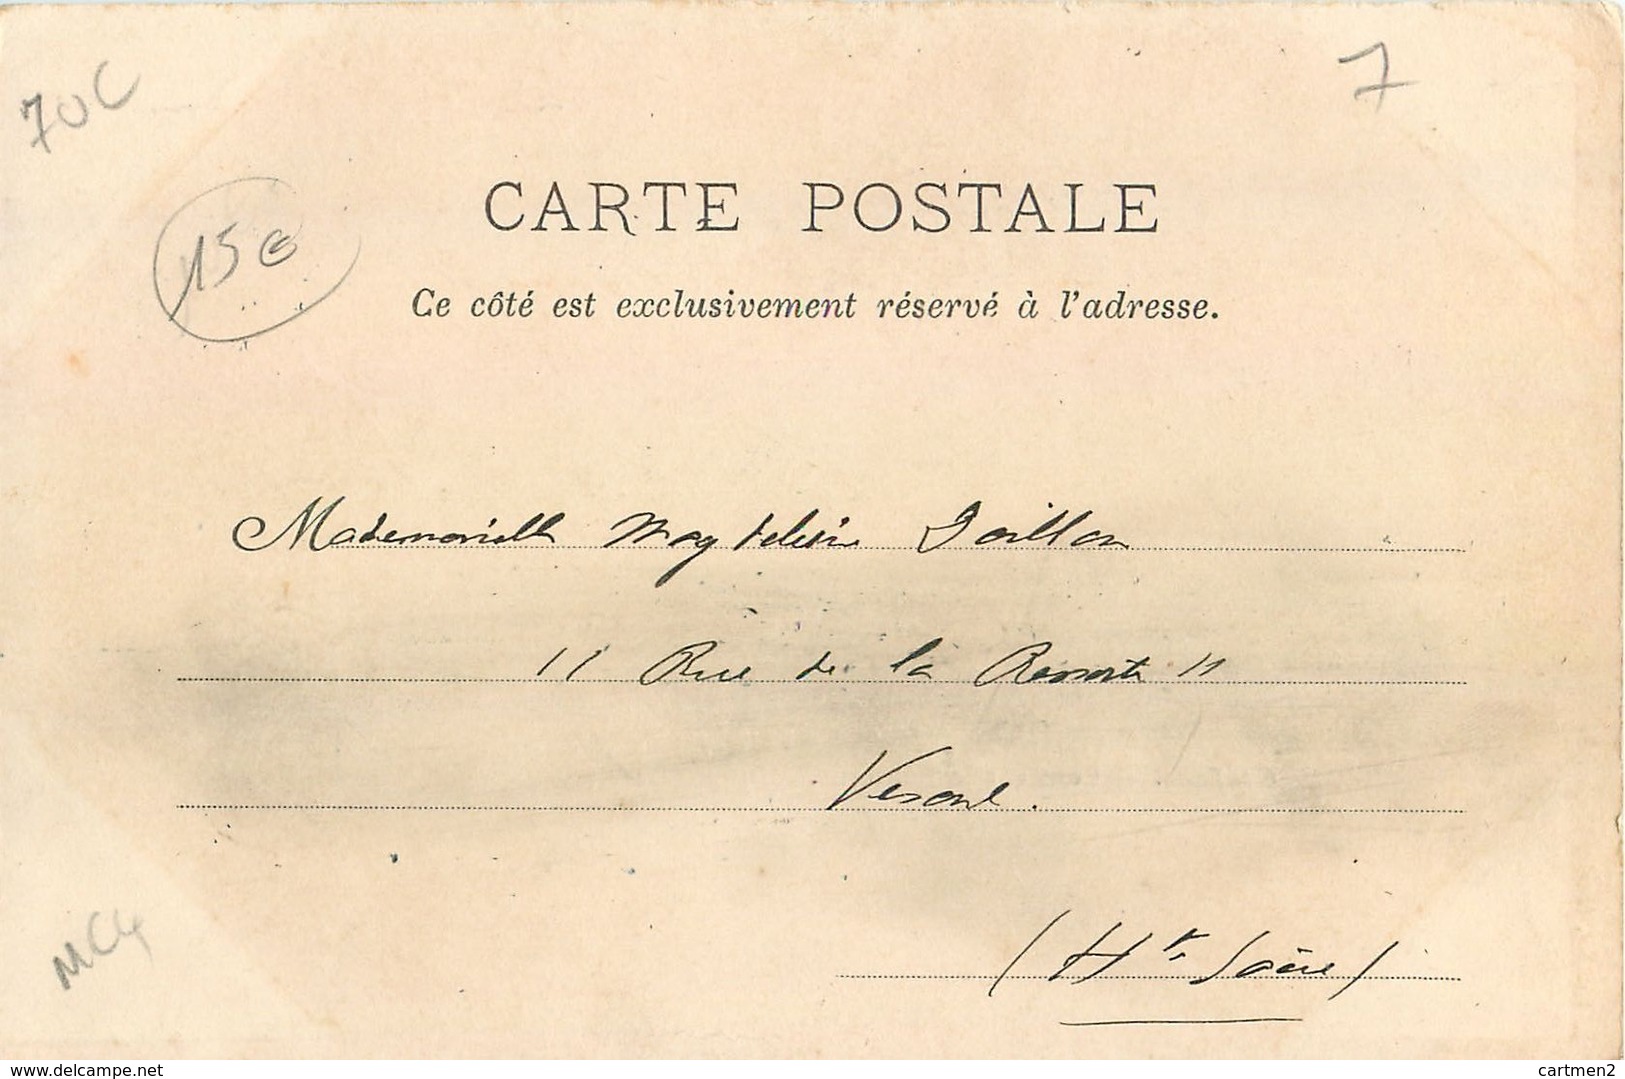 70C
7
15€
CARTE POSTALE
Ce côté est exclusivement réservé à l'adresse.
Mademoiselle Magdeleine
11 Rue de la 11
Vesoul.
(Hte Saône)
MC4
www.delcampe.net
cartmen2